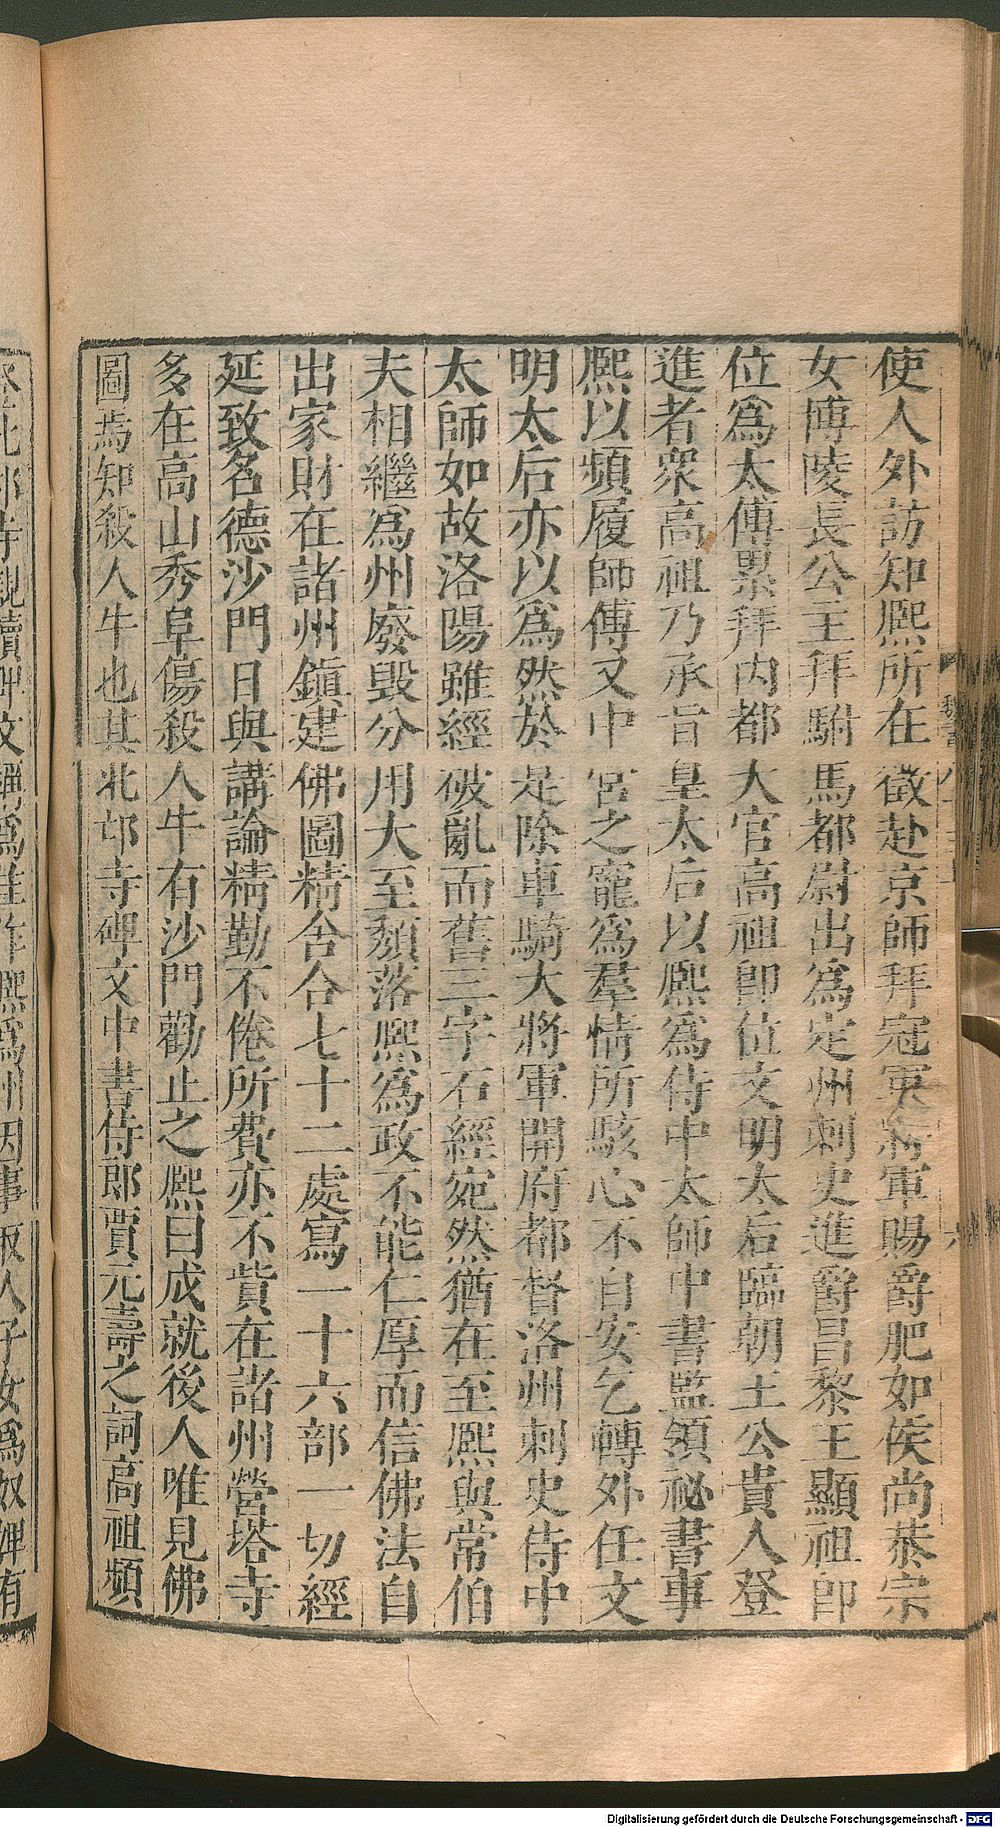 使人外訪知熈所在徵赴京師拜冠軍將軍賜爵肥如侯尚恭宗
女博陵長公主拜駙馬都尉出爲定州刺史進爵昌黎王顯祖卽
位爲太傅累拜内都大官高祖卽位文明太后臨朝王公貴人登
進者衆高祖乃承旨皇太后以熈爲侍中太師中書監領祕書事
熈以頻履師傅又中宮之寵爲羣情所駭心不自安乞轉外任文
明太后亦以爲然於是除車騎大將軍開府都督洛州刺史侍中
太師如故洛陽雖經破亂而舊三字石經宛然猶在至熈與常伯
夫相繼爲州廢毀分用大至頽落熈爲政不能仁厚而信佛法自
出家財在諸州鎭建佛圖精舍合七十二處寫一十六部一切經
延致名德沙門日與講論精勤不倦所費亦不貲在諸州營塔寺
多在高山秀阜傷殺人牛有沙門勸止之熈曰成就後人唯見佛
圖焉知殺人牛也其北邙寺碑文中書侍郎賈元壽之詞高祖頻
登北邙寺親讀碑文稱爲佳作熈爲州因事取人子女爲奴婢有
Digitalisierung gefördert durch die Deutsche Forschungsgemeinschaft - DFG